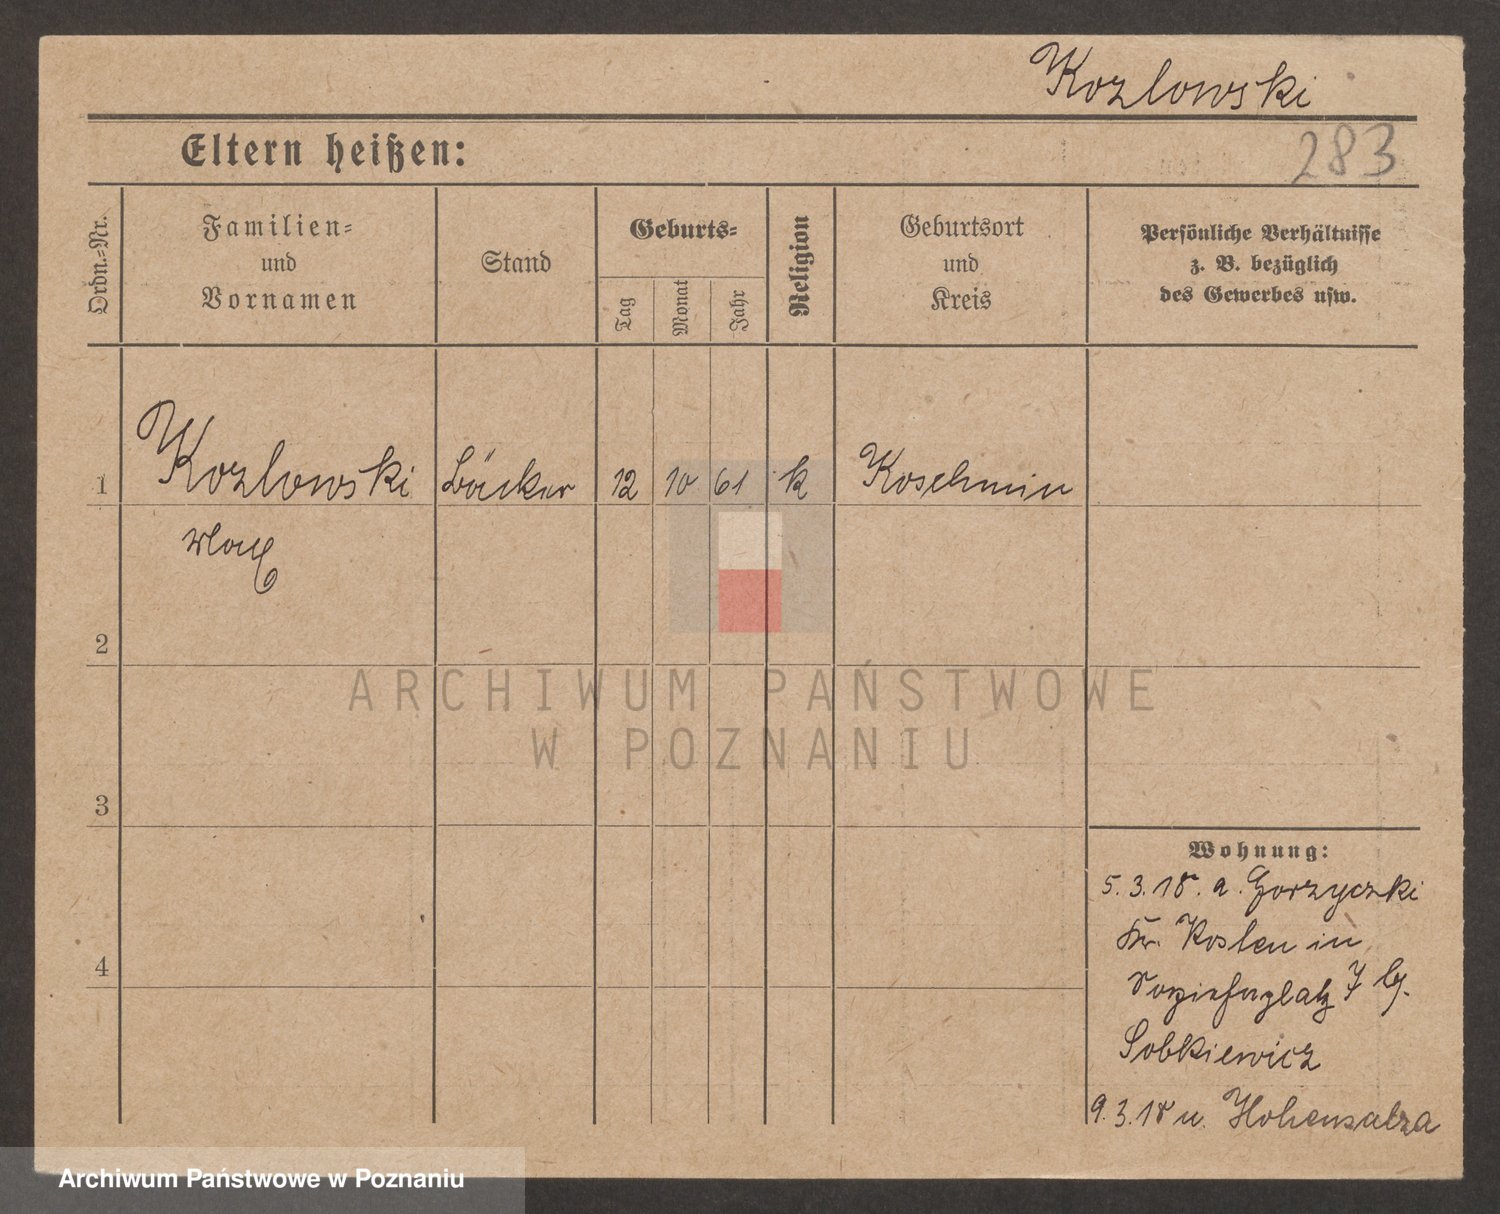 Kozlowski
283
Eltern heißen:
Ordn.-Nr.
Familien-
und
Vornamen
Stand
Geburts-
Tag
Monat
Jahr
Religion
Geburtsort
und
Kreis
Persönliche Verhältnisse
z. B. bezüglich
des Gewerbes usw.
1 Kozlowski Bäcker 12 10 61 k Koschmin
2
3
4
Wohnung:
5.3.18. a. Gorzyczki
Kr. Kosten in
7 b/.
Sobkiewicz
9.3.18 n. Hohensalza
ARCHIWUM PAŃSTWOWE
W POZNANIU
Archiwum Państwowe w Poznaniu